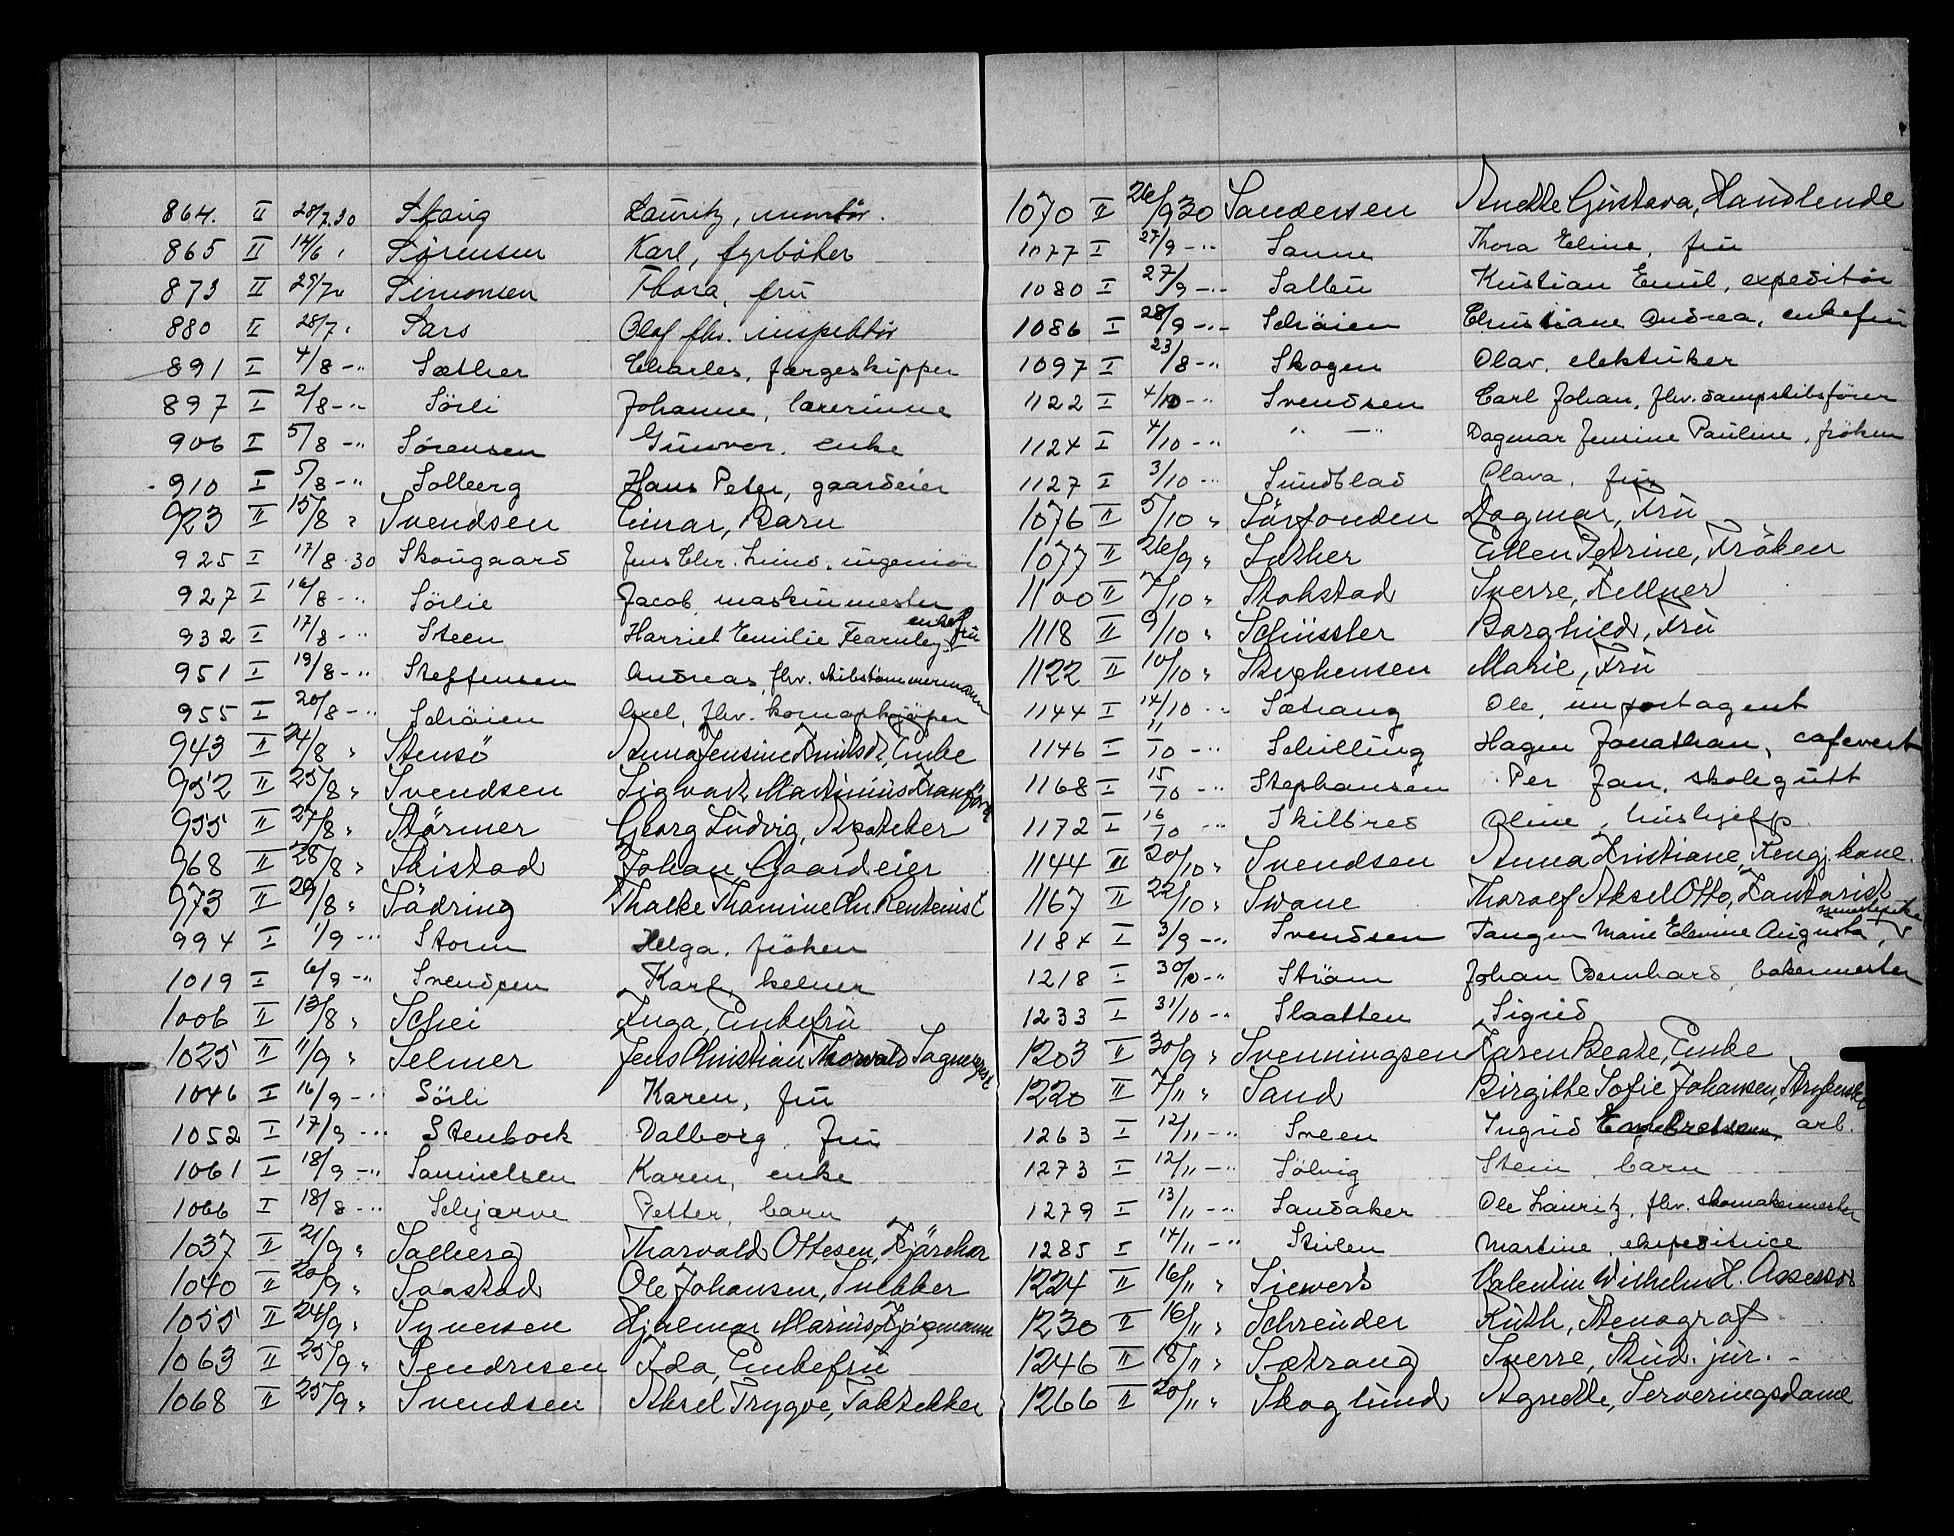 864. II 28/7.30 Skaug Lauritz, montör.
865 II 14/6 " Sørensen Karl, fyrböter
873 II 29/7 " Simonsen Thora, fru
880 II 28/7 " Sars Olaf fhv. inspektör
891 I 4/8 -" Sæther Charles, færgeskipper
897 I 2/8 -" Sörli Johanne, lærerinne
906 I 5/8 -" Sørensen Gunvor, enke
910 I 5/8 -" Solberg Hans Peter, gaardeier
923 II 15/8 " Svendsen Einar, Barn
925 I 17/8.30 Skougaard Jens Chr. Lund, ingeniör
927 I 16/8 -" Sörlie Jacob, maskinmester
932 I 17/8 -" Steen Harriet Emilie Fearnley enkefru
951 I 19/8 -" Steffensen Andreas, fhv. skibstømmermann
955 I 20/8 -" Schöien Axel, fhv. kornopkjøper
943 II 24/8 " Stensö Anna Jensine Knutsdt, Enke
952 II 25/8 " Svendsen Sigvart Martinius Kranförer
955 II 27/8 " Størmer Georg Ludvig, Apoteker
968 II 28/8 " Skistad Johan, Gaardeier
973 II 29/8 " Södring Thalke Thomine Chr. Rentenist
994 I 1/9 -" Storm Helga, fröken
1019 I 6/9 -" Svendsen Karl, kelner
1006 II 13/8 " Schei Inga, Enkefru
1025 II 11/9 " Selmer Jens Christian Thorvald Lagmannst
1046 I 16/9 -" Sörli Karen, fru
1052 I 17/9 -" Stenbock Valborg, fru
1061 I 18/9 -" Samuelsen Karen, enke
1066 I 18/8 -" Schjærve Petter, barn
1037 II 21/9 " Solberg Thorvald Ottesen, Kjörekar
1040 II 20/9 " Saastad Ole Johansen, Snekker
1055 II 24/9 " Syversen Hjalmar Marius, Kjøpmann
1063 II 25/9 " Sendresen Ida, Enkefru
1068 II 25/9 " Svendsen Aksel Trygve, Taktekker
1070 II 26/9 30 Sandersen Anette Gustava, Handlende
1077 I 27/9 -" Sanne Thora Eline, fru
1080 I 27/9 -" Salten Kristian Emil, expeditör
1086 I 28/9 -" Schöien Christiane Andrea, enkefru
1097 I 23/8 -" Skogen Olav, elektriker
1122 I 4/10 -" Svendsen Carl Johan, fhv. dampskibsfører
1124 I 4/10 -" " — " Dagmar Jensine Pauline, fröken
1127 I 3/10 -" Sundblad Olava, fru
1076 II 5/10 " Sörfonden Dagmar, Fru
1077 II 26/9 " Sæther Ellen Petrine, Fröken
1100 II 7/10 " Stokstad Sverre, Kellner
1118 II 9/10 " Schüssler Borghild, Fru
1122 II 10/10 " Stephensen Marie, Fru
1144 I 14/10 -" Sætrang Ole, importagent
1146 I 11/10 -" Schilling Hagen Jonathan, cafevert
1168 I 15/10 -" Stephansen Per Jan, skolegutt
1172 I 16/10 -" Skilbred Oline, hushjelp
1144 II 20/10 " Svendsen Anna Kristiane, Rengj. kone.
1167 II 22/10 " Swane Thorolf Aksel Otto, Kontorist
1184 I 3/9 -" Svendsen Tangen Marie Elevine Augusta,
1218 I 30/10 -" Ström Johan Bernhard, bakermester
1233 I 31/10 -" Slaatten Sigrid
1203 II 30/9 " Svenningsen Karen Beate, Enke
1220 II 7/11 " Sand Birgitte Sofie Johansen,
1263 I 12/11 -" Sveen Ingrid Engebretsen, arb.
1273 I 12/11 -" Sölvig Stein, barn
1279 I 13/11 -" Sandaker Ole Lauritz, fhv. skomakermester
1285 I 14/11 -" Stulen Martine, ekspeditrice
1224 II 16/11 " Siewers Valentin Wilhelm H. Assessor
1230 II 16/11 " Schreuder Ruth, Stenograf
1246 II 18/11 " Sætrang Sverre, Stud. jur. -
1266 II 20/11 " Skoglund Agnette, Serveringsdame